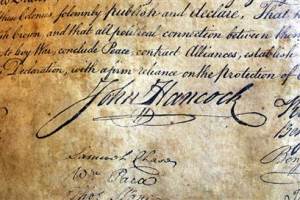 these Colonies, solemnly publish and declare, That
Crown, and that all political connection between them
to levy War, conclude Peace, contract Alliances, establish
Declaration, with a firm reliance on the protection of
John Hancock
Samuel Chase
Wm Paca
Thos Stone